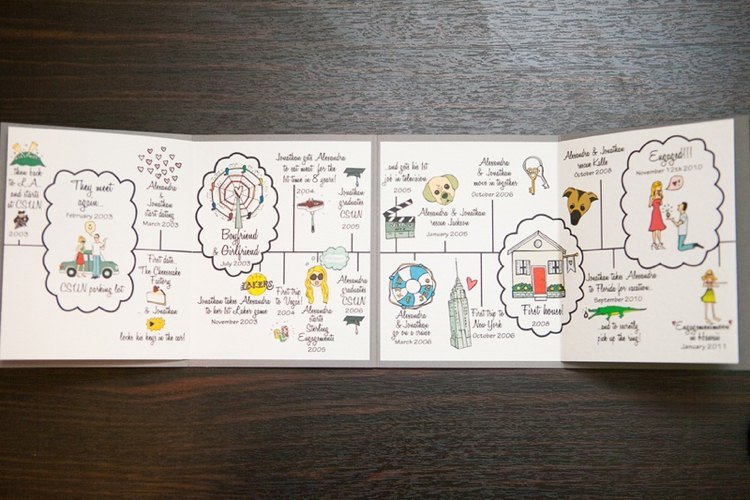 then back
to L.A.
and starts
at CSUN
They meet
again...
February 2003
CSUN parking lot
Alexandra
&
Jonathan
start dating
March 2003
First date...
The Cheesecake
Factory
& Jonathan
locks his keys in the car!
Boyfriend
& Girlfriend
July 2003
Jonathan takes Alexandra
to her 1st Lakers game
November 2003
LAKERS
Jonathan gets Alexandra
to eat meat for the
1st time in 8 years!
2004
First trip
to Vegas!
2004
Jonathan
graduates
CSUN
2005
Alexandra
starts
Sterling
Engagements
2005
Alexandra
graduates
CSUN
2006
...and gets his 1st
job in television
2005
Alexandra & Jonathan
rescue Jackson
January 2005
Alexandra
& Jonathan
go on a cruise
March 2006
Alexandra
& Jonathan
move in together
October 2006
First trip to
New York
October 2006
First house!
2008
Alexandra & Jonathan
rescue Kalle
October 2008
Jonathan takes Alexandra
to Florida for vacation...
September 2010
...and to secretly
pick up the ring!
Engaged!!!
November 12th 2010
Engagementmoon
in Hawaii
January 2011